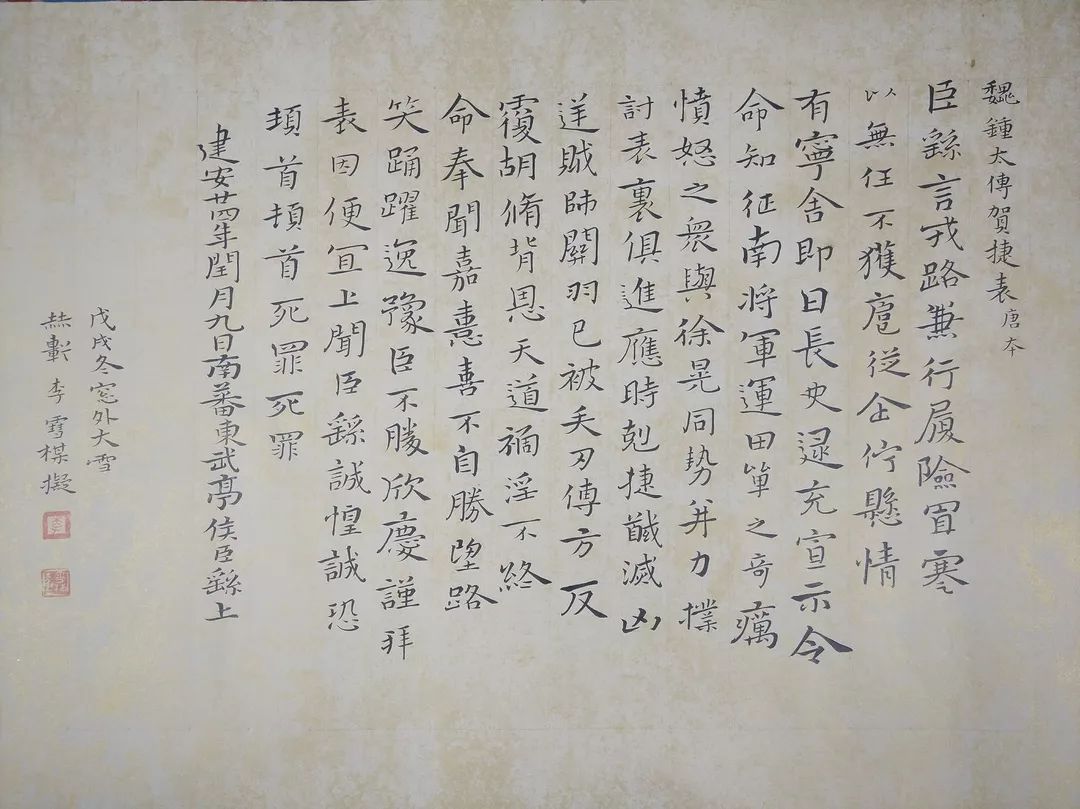 魏鍾太傅賀捷表唐本
臣繇言戎路兼行履險冒寒
以無任不獲扈從企佇懸情
有寧舍即日長史逯充宣示令
命知征南將軍運田單之奇厲
憤怒之衆與徐晃同勢并力撲
討表裏俱進應時剋捷馘滅凶
逆賊帥關羽已被矢刃傅方反
覆胡脩背恩天道禍淫不終
命奉聞嘉憙喜不自勝望路
笑踊躍逸豫臣不勝欣慶謹拜
表因便宜上聞臣繇誠惶誠恐
頓首頓首死罪死罪
建安廿四年閏月九日南蕃東武亭侯臣繇上
戊戌冬窓外大雪
軒李雪擬